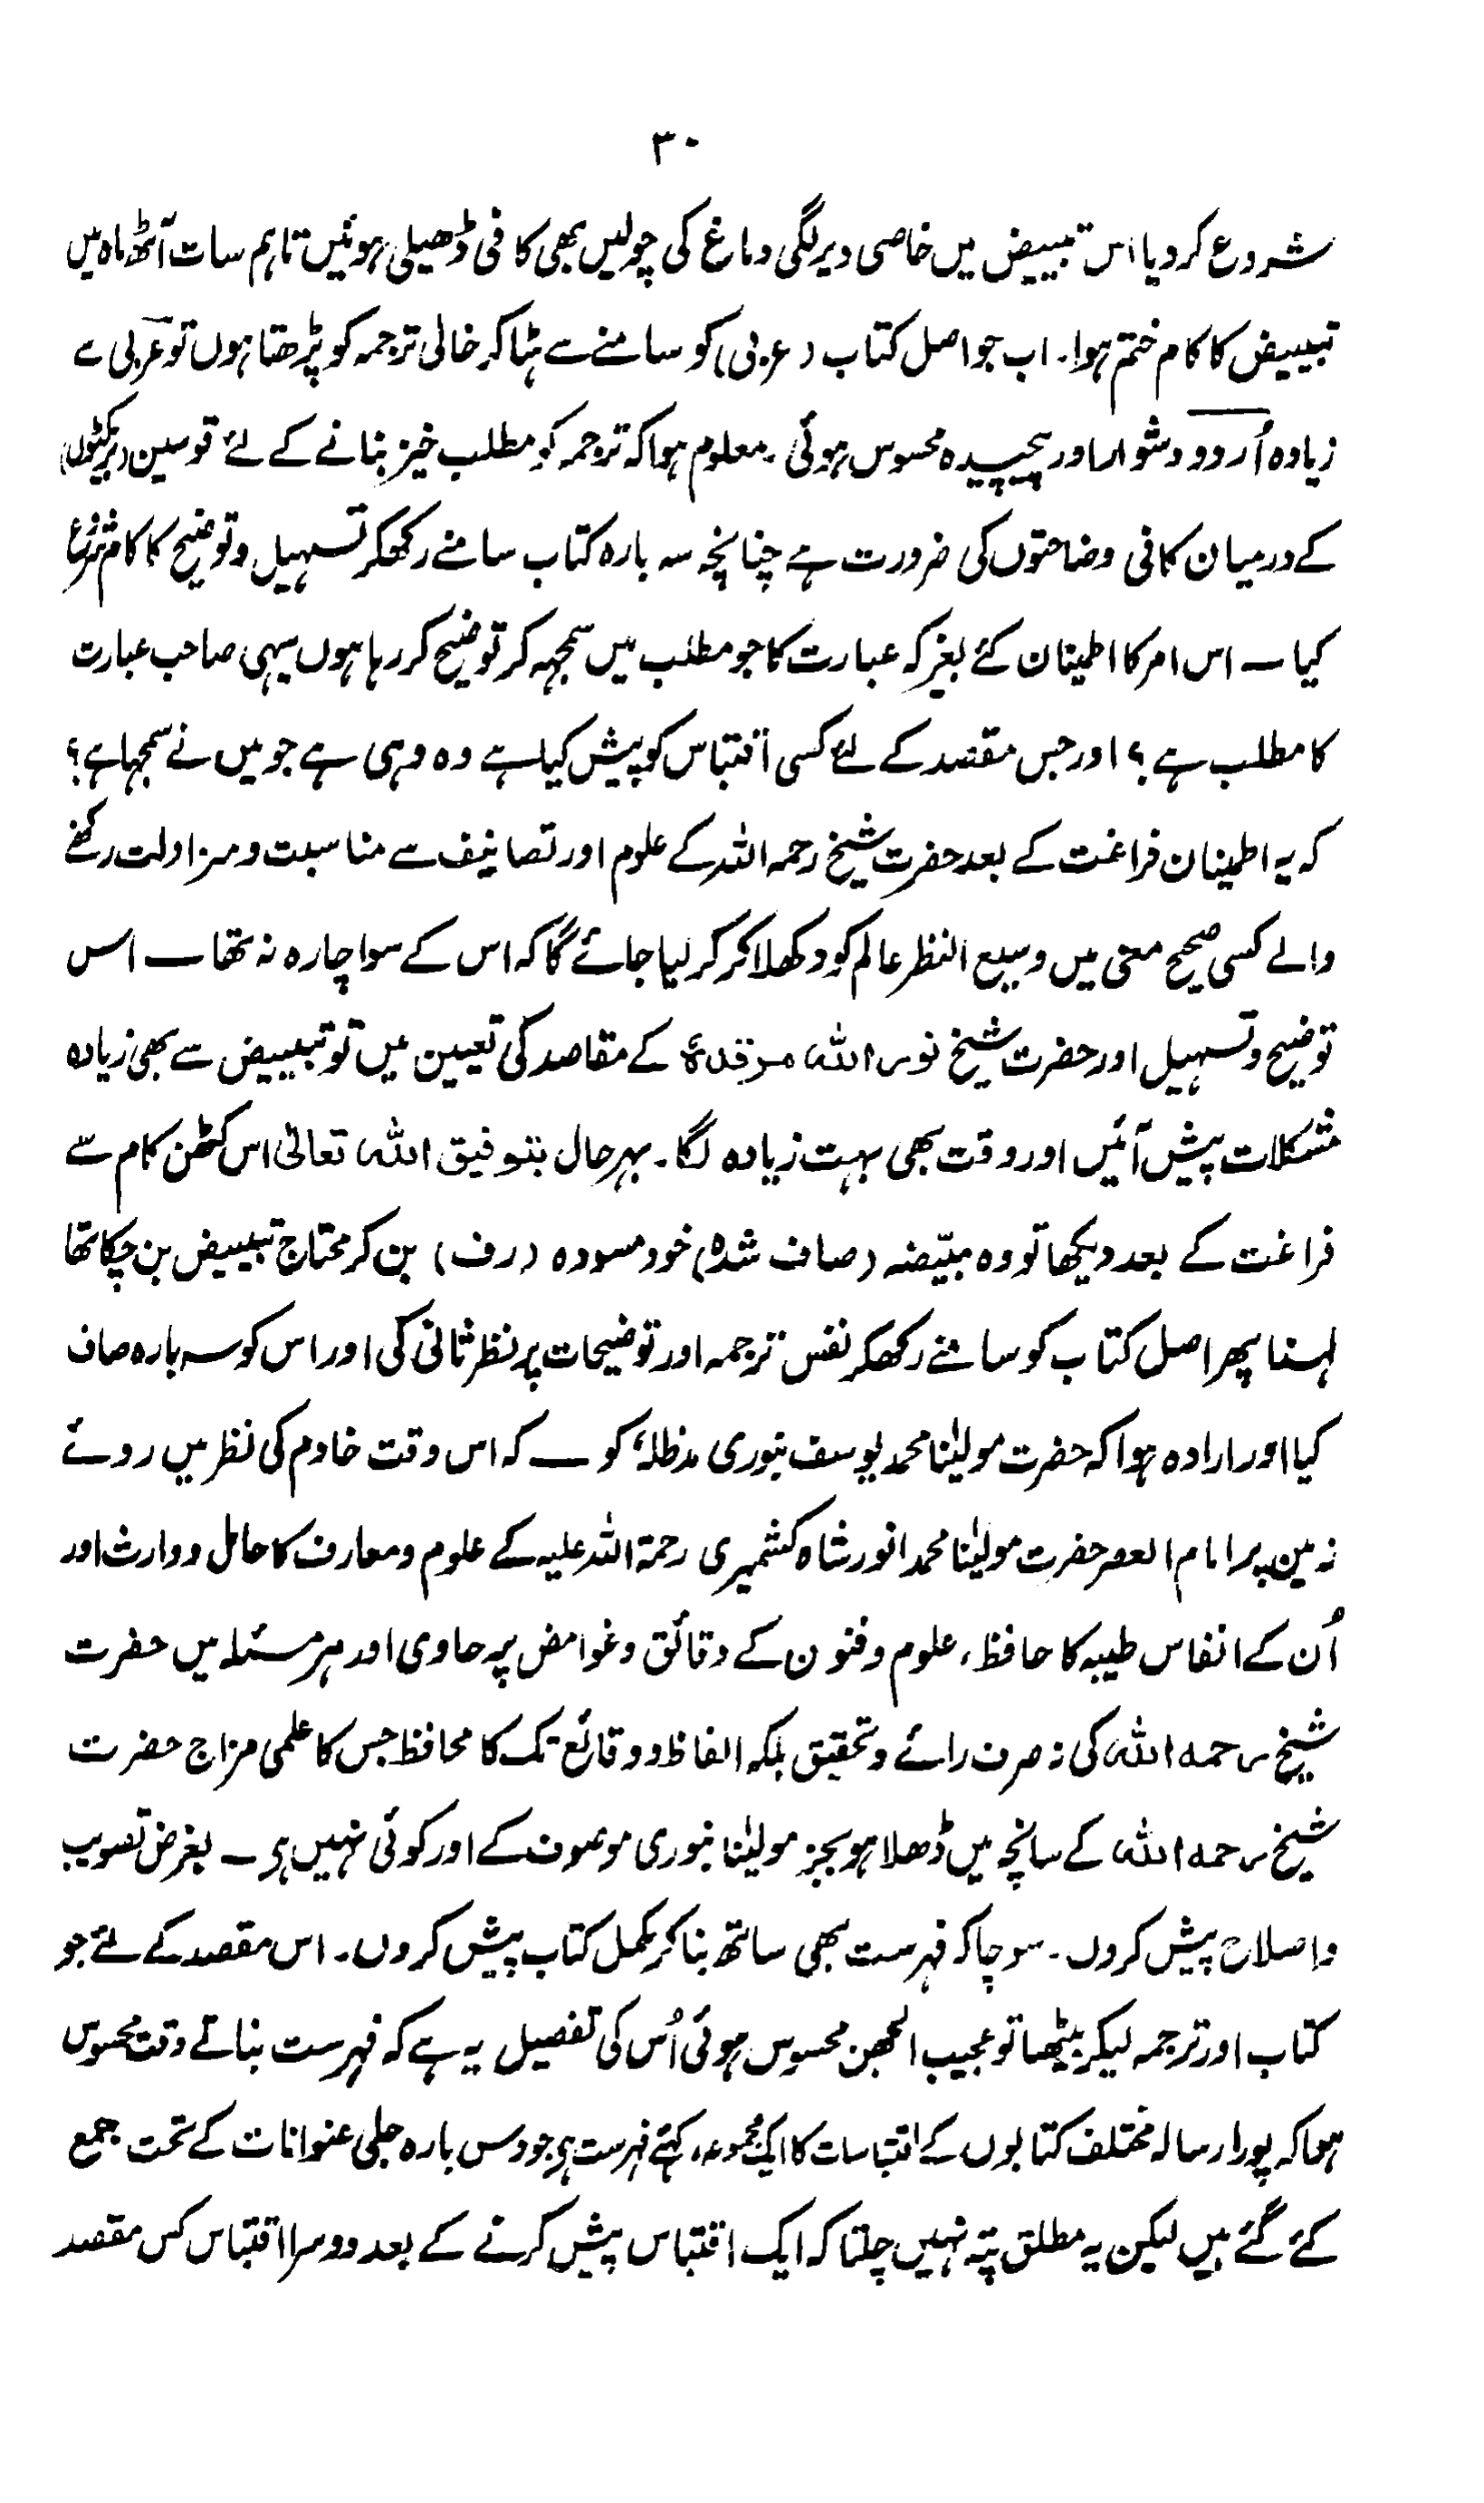 ۳۰
شروع کردیا اس تبییض میں خاصی دیر لگی دماغ کی چولیں بھی کافی ڈھیلی ہوئیں تاہم سات آٹھ ماہ میں
تبییض کا کام ختم ہوا۔ اب جو اصل کتاب (عربی) کو سامنے سے ہٹا کر خالی ترجمہ کو پڑھتا ہوں تو عربی سے
زیادہ اُردو دشوار اور پیچیدہ محسوس ہوئی۔ معلوم ہوا کہ ترجمہ کو مطلب خیز بنانے کے لئے قوسین (بریکٹوں)
کے درمیان کافی وضاحتوں کی ضرورت ہے چنانچہ سہ بارہ کتاب سامنے رکھکر تسہیل و توضیح کا کام شروع
کیا ــ اس امر کا اطمینان کئے بغیر کہ عبارت کا جو مطلب میں سمجہہ کر توضیح کر رہا ہوں یہی صاحب عبارت
کا مطلب ہے؟ اور جس مقصد کے لئے کسی اقتباس کو پیش کیا ہے وہ وہی ہے جو میں نے سمجہا ہے؟
کہ یہ اطمینان فراغت کے بعد حضرت شیخ رحمہ اللہ کے علوم اور تصانیف سے مناسبت و مزاولت رکھنے
والے کسی صحیح معنی میں وسیع النظر عالم کو دکھلا کر کر لیا جائے گا کہ اس کے سوا چارہ نہ تھا ــ اس
توضیح و تسہیل اور حضرت شیخ نور اللہ مرقدہٗ کے مقاصد کی تعیین میں تو تبییض سے بھی زیادہ
مشکلات پیش آئیں اور وقت بھی بہت زیادہ لگا۔ بہرحال بتوفیق اللہ تعالیٰ اس کٹھن کام سے
فراغت کے بعد دیکھا تو وہ مبیّضہ (صاف شدہ) خود مسودہ (رف) بن کر محتاج تبییض بن چکا تھا
لہٰذا پھر اصل کتاب کو سامنے رکھکر نفس ترجمہ اور توضیحات پر نظر ثانی کی اور اس کو سہ بارہ صاف
کیا اور ارادہ ہوا کہ حضرت مولیٰنا محمد یوسف بنوری مدظلہٗ کو ــ کہ اس وقت خادم کی نظر میں روئے
زمین پر امام العصر حضرت مولیٰنا محمد انور شاہ کشمیری رحمۃ اللہ علیہ کے علوم و معارف کا حامل و وارث اور
اُن کے انفاس طیبہ کا حافظ، علوم و فنون کے دقائق و غوامض پر حاوی اور ہر مسئلہ میں حضرت
شیخ رحمہ اللہ کی نہ صرف رائے و تحقیق بلکہ الفاظ و وقائع تک کا محافظ جس کا علمی مزاج حضرت
شیخ رحمہ اللہ کے سانچہ میں ڈھلا ہو بجز مولیٰنا بنوری موصوف کے اور کوئی نہیں ہے ــ بغرض تصویب
و اصلاح پیش کروں۔ سوچا کہ فہرست بھی ساتھ بنا کر مکمل کتاب پیش کروں۔ اس مقصد کے لئے جو
کتاب اور ترجمہ لیکر بیٹھا تو عجیب الجھن محسوس ہوئی اُس کی تفصیل یہ ہے کہ فہرست بناتے وقت محسوس
ہوا کہ پورا رسالہ مختلف کتابوں کے اقتباسات کا ایک مجموعہ، کہئے فہرست ہے جو دس بارہ جلی عنوانات کے تحت جمع
کئے گئے ہیں لیکن یہ مطلق پتہ نہیں چلتا کہ ایک اقتباس پیش کرنے کے بعد دوسرا اقتباس کس مقصد